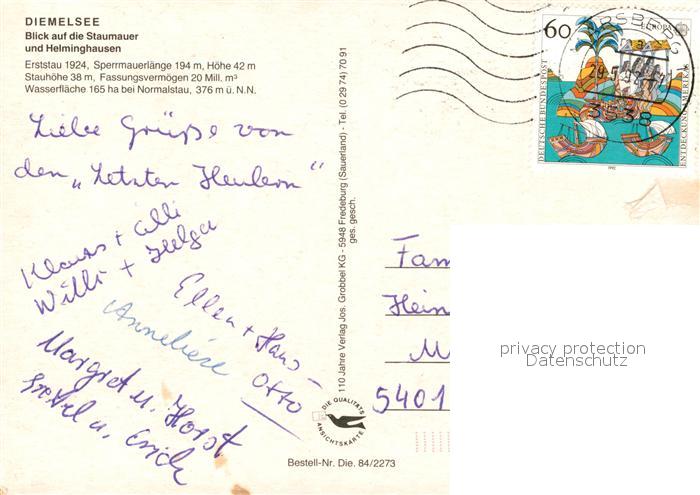 DIEMELSEE
Blick auf die Staumauer
und Helminghausen
Erststau 1924, Sperrmauerlänge 194 m, Höhe 42 m
Stauhöhe 38 m, Fassungsvermögen 20 Mill. m³
Wasserfläche 165 ha bei Normalstau, 376 m ü. N.N.
Liebe Grüße von
den „Letzten Heulern“
Klaus + Cilli
Willi + Helga
Ellen + Hans-
Otto
Anneliese
Margret u. Horst
Gretel u. Erich
110 Jahre Verlag Jos. Grobbel KG - 5948 Fredeburg (Sauerland) - Tel. (0 29 74) 70 91
ges. gesch.
DIE QUALITÄTS
ANSICHTSKARTE
Bestell-Nr. Die. 84/2273
60
EUROPA
DEUTSCHE BUNDESPOST
ENTDECKUNG AMERIKAS
1992
ARSBERG
a
3538
Fam
Hein
M
5401
privacy protection
Datenschutz